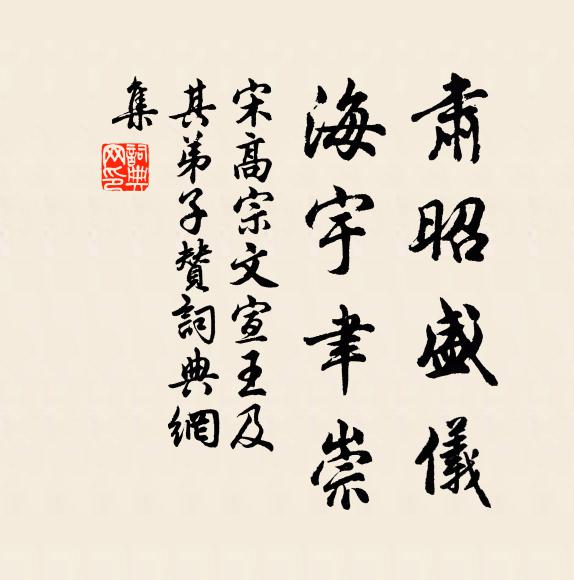 肅昭盛儀
海宇聿崇
宋高宗文宣王及
其弟子贊詞典網
集
詞典網印